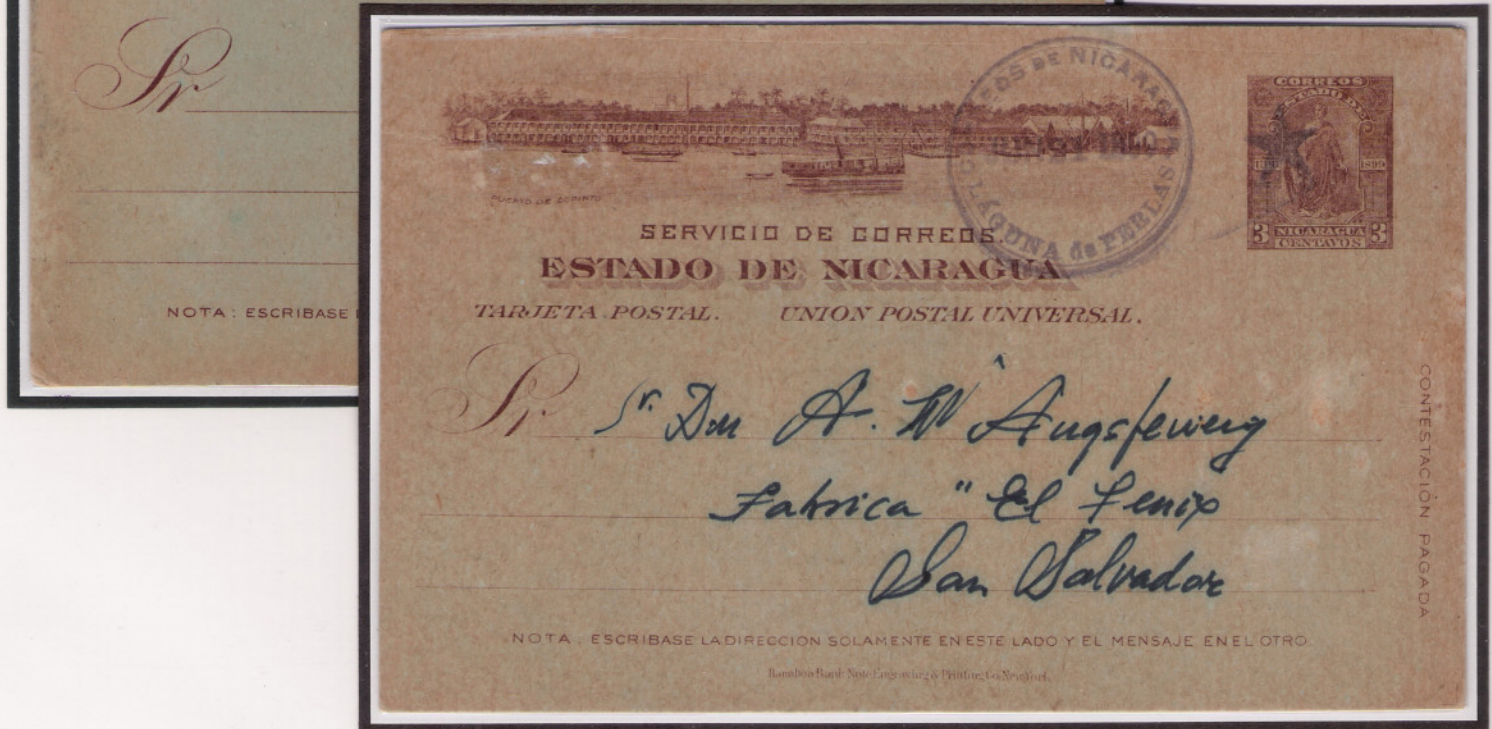 Sr
NOTA: ESCRIBASE
CORREOS DE NICARAGUA
LAGUNA de PERLAS
CORREOS
ESTADO DE
1899
3 NICARAGUA 3
CENTAVOS
PUERTO DE CORINTO
SERVICIO DE CORREOS.
ESTADO DE NICARAGUA
TARJETA POSTAL. UNION POSTAL UNIVERSAL.
Sr
Sr. A. W
Fabrica "El Fenix
San Salvador
CONTESTACIÓN PAGADA
NOTA: ESCRIBASE LA DIRECCION SOLAMENTE EN ESTE LADO Y EL MENSAJE EN EL OTRO.
Hamilton Bank Note Engraving & Printing Co. New York.